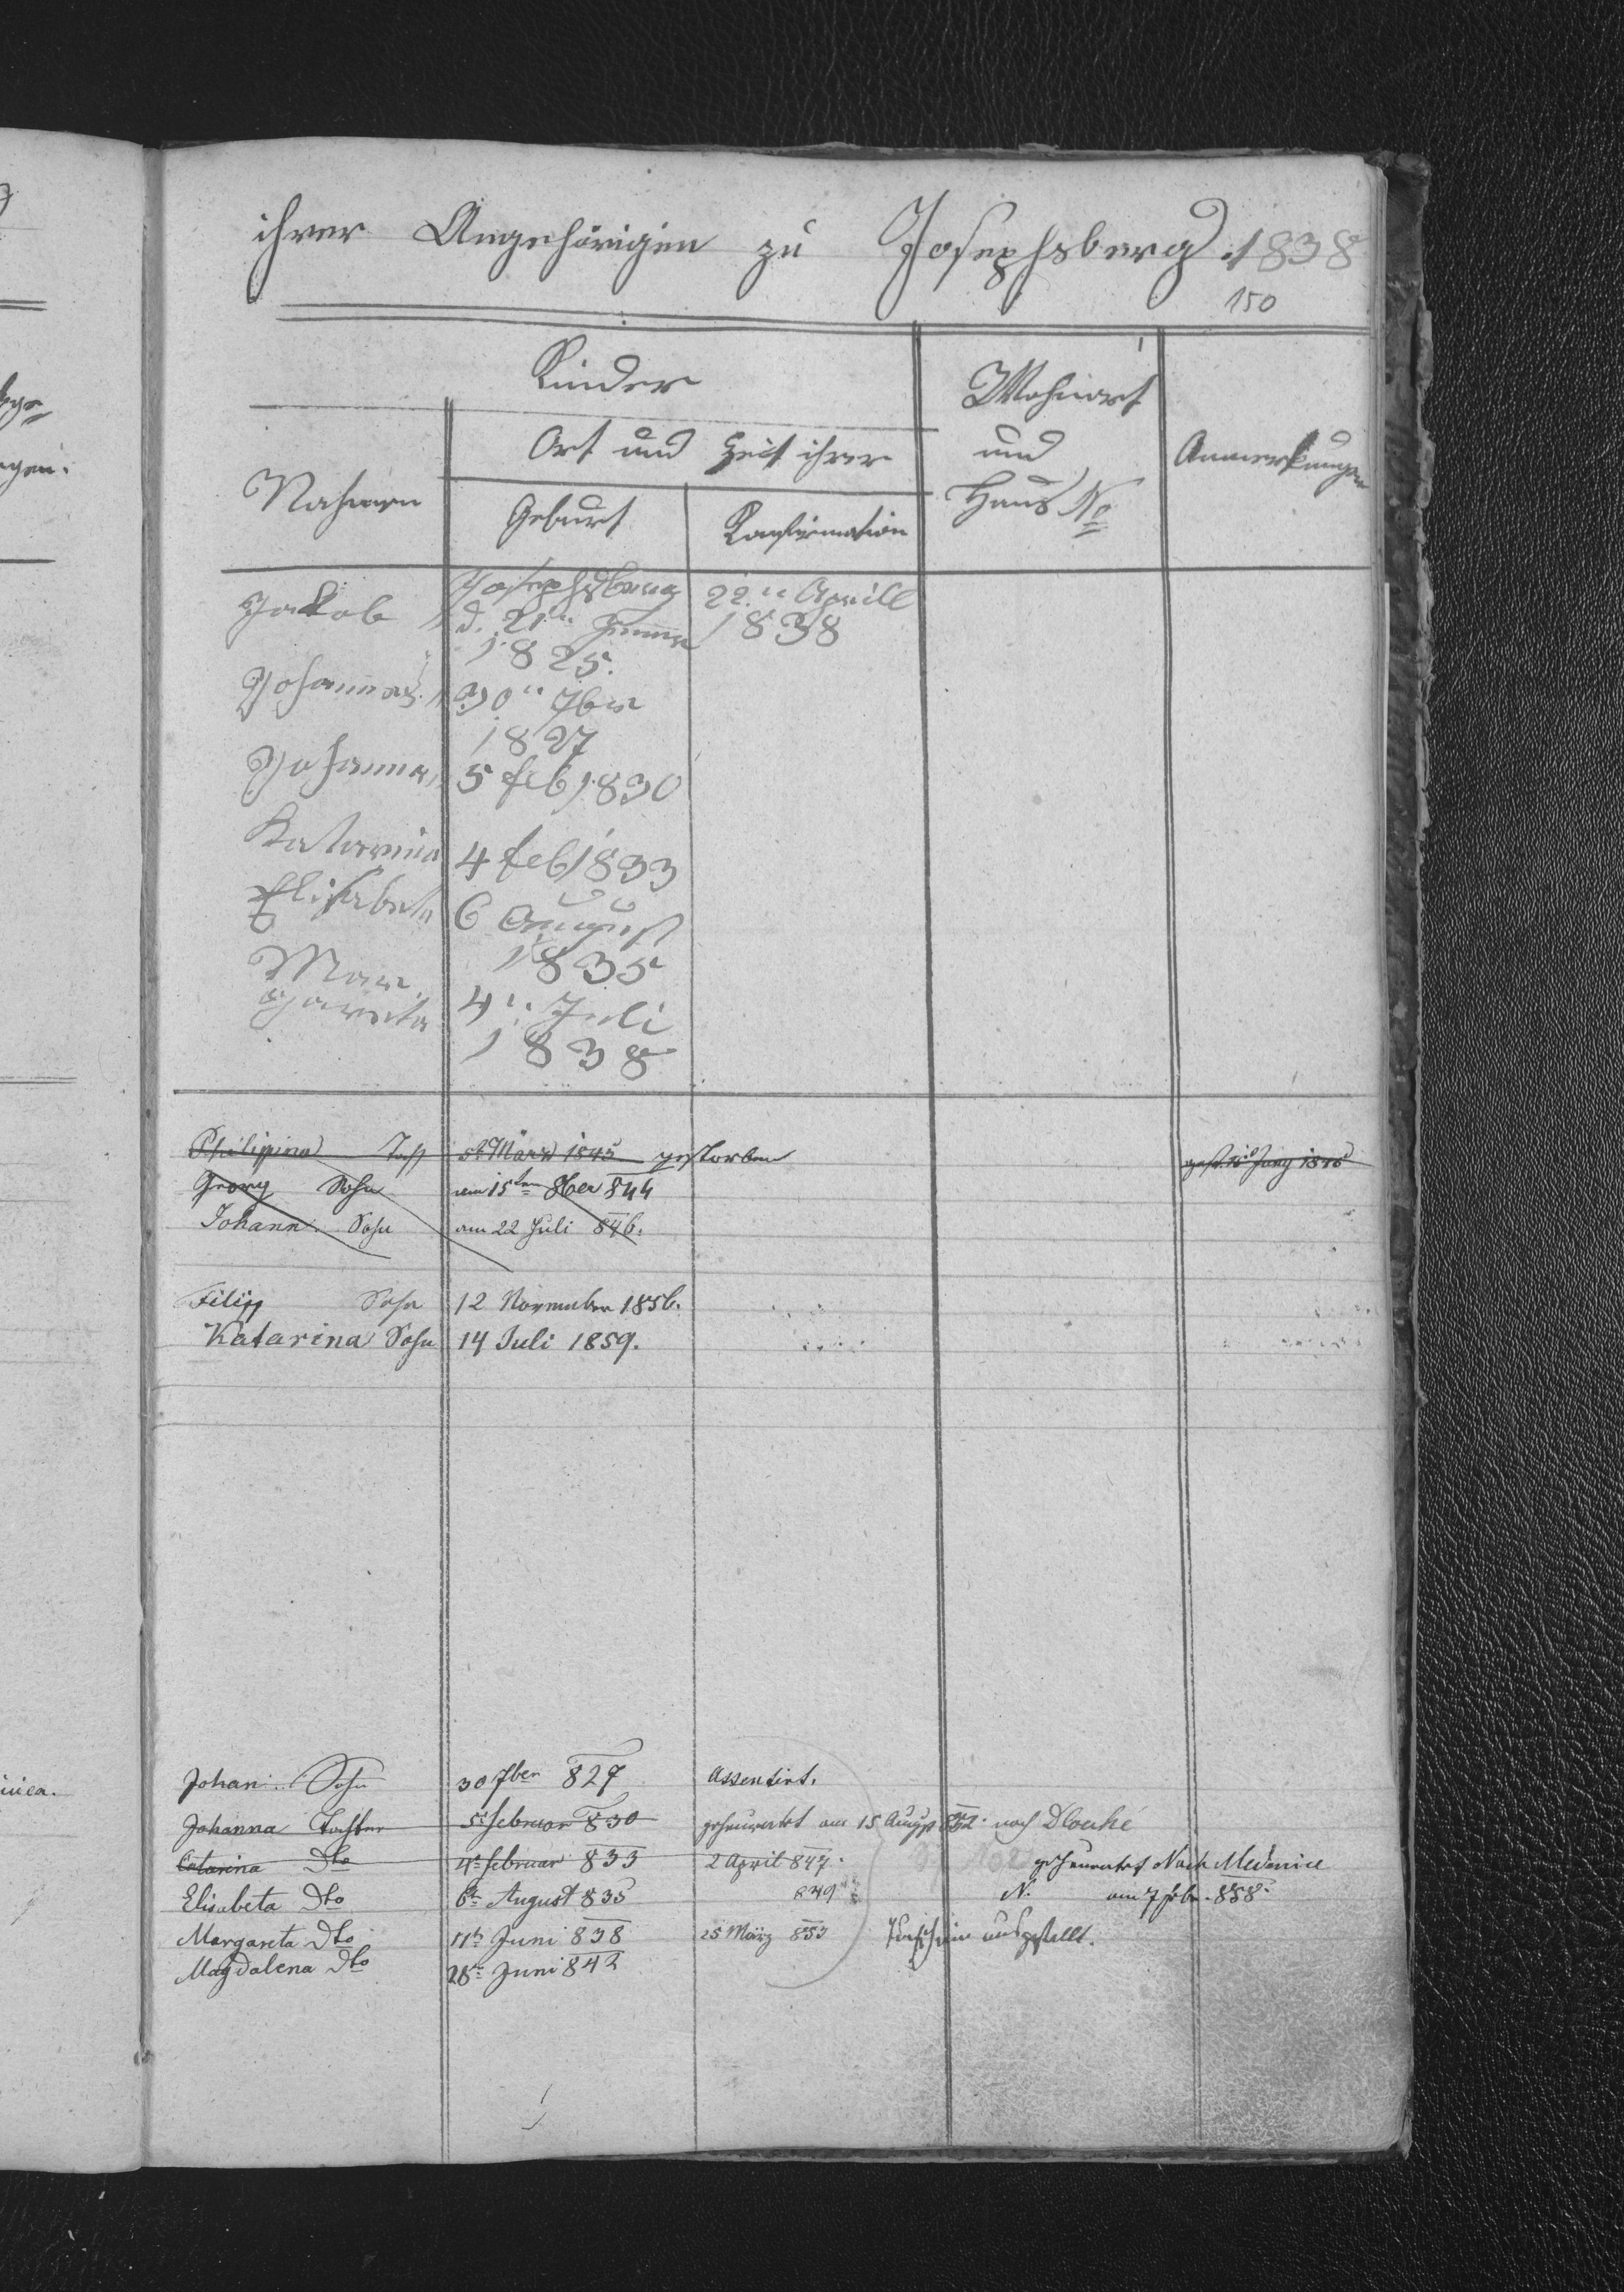 ihrer Angehörigen zu Josephsberg 1838
150
Kinder
Wohnort
und
Haus No
Anmerkungen
Ort und Zeit ihrer
Nahmen
Geburt
Konfirmation
Jakob
Josephsberg
d. 21ten
1825.
22ten Aprill
1838
Johannes
30ten 7ber
1827
Johanna
5 feb 1830
Katarina
4 feb 1833
Elisabeta
6 August
1835
Mar
gareta
4ten Juli
1838
Philippina Toch 5t März 1843 gestorben
Georg Sohn am 15ten 8ber 844
Johann Sohn am 22 Juli 846.
Filipp Sohn 12 November 1856.
Katarina Sohn 14 Juli 1859.
Johan Sohn 30 7ber 827 Assentirt.
Johanna Tochter 5t februar 830 geheurатet am 15 August 852 nach
Catarina Dto 4t februar 833 2 April 847. geheuratet Nach Medenice
Elisabeta Dto 6t August 835 849 N. am 7 febr. 858.
Margareta Dto 11t Juni 838 25 März 853 ausgestellt.
Magdalena Dto 28t Juni 842